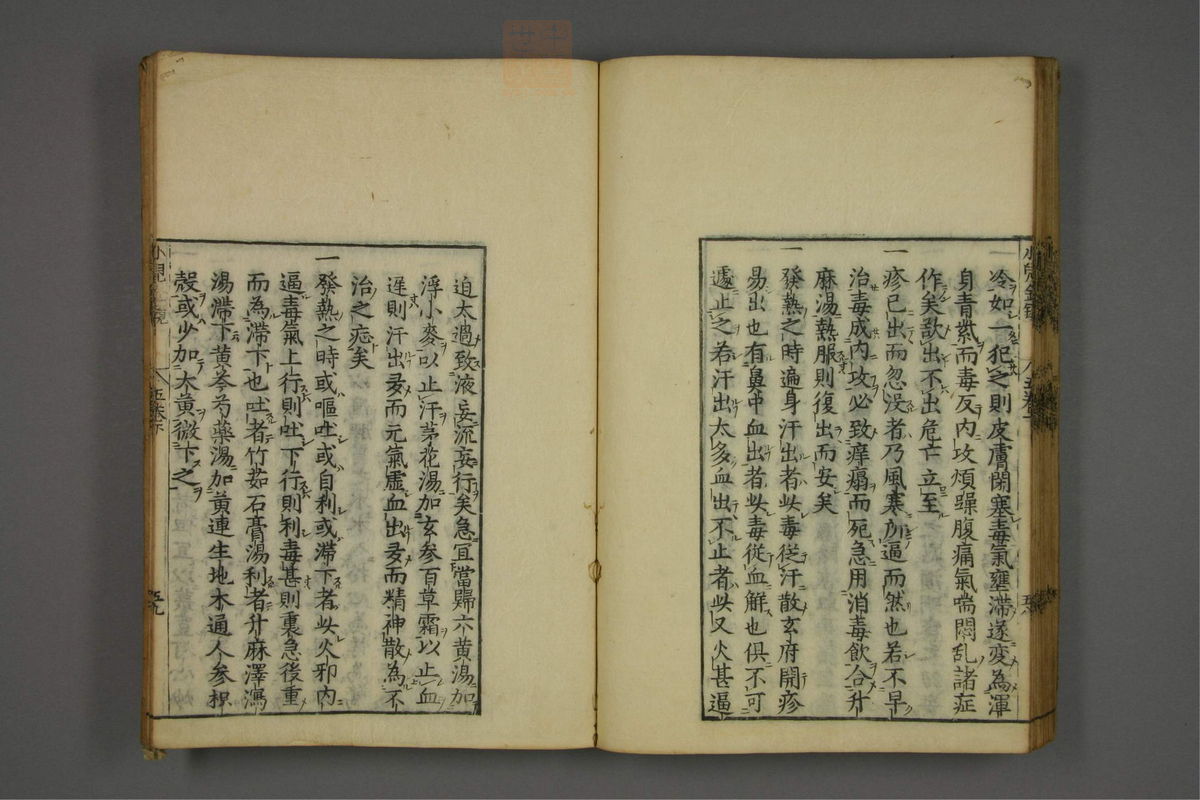 冷如一犯之則皮膚閉塞毒氣壅滯遂變為渾
身青紫而毒反内攻煩躁腹痛氣喘悶乱諸症
作矣欲出不出危亡立至
一疹已出而忽没者乃風寒所逼而然也若不早
治毒成内攻必致痒癟而死急用消毒飲合升
麻湯熱服則復出而安矣
一發熱之時遍身汗出者此毒從汗散玄府開疹
易出也有鼻中血出者此毒從血觧也俱不可
遽止之若汗出太多血出不止者此又火甚逼
迫太過致液妄流妄行矣急宜當歸六黄湯加
浮小麥以止汗茅花湯加玄参百草霜以止血
遲則汗出多而元氣虚血出多而精神散為不
治之症矣
一發熱之時或嘔吐或自利或滯下者此火邪内
逼毒氣上行則吐下行則利毒甚則裏急後重
而為滯下也吐者竹茹石膏湯利者升麻澤瀉
湯滯下黄芩芍藥湯加黄連生地木通人参枳
殻或少加大黄微下之
小兒
五卷下
五九